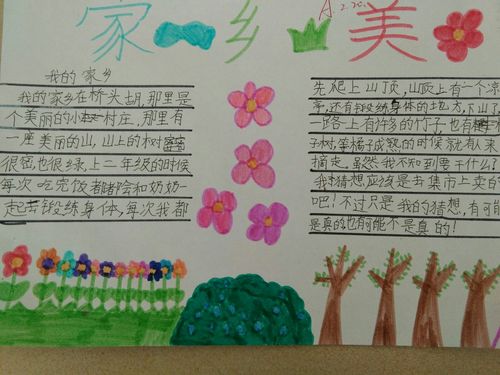 家乡美
A.2.20.
我的家乡
我的家乡在桥头胡,那里是
个美丽的小村庄,那里有
一座美丽的山,山上的树
很密也很绿,上二年级的时候
每次吃完饭者都会和奶奶一
起去锻练身体,每次我都
先爬上山顶,山顶上有一个凉
亭,还有锻练身体的地方,下山了
一路上有许多的竹子,也有
子树,等橘子成熟的时候就有人来
摘走,虽然我不知到要干什么!
我猜想应该是去集市上卖的
吧!不过只是我的猜想,有可能
是真的也有可能不是真的!